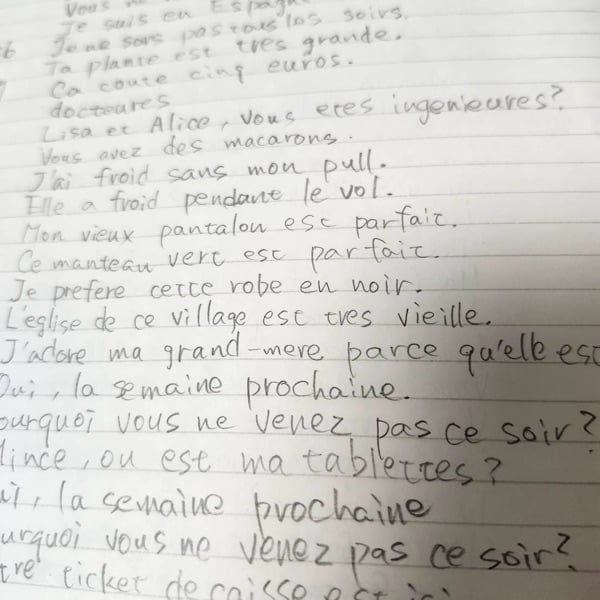 Vous
Je suis en Espag
6 Je ne sors pas tous les soirs.
7 Ta plante est tres grande.
Ca coute cinq euros.
docteures
Lisa et Alice, vous etes ingenieures?
Vous avez des macarons.
J'ai froid sans mon pull.
Elle a froid pendant le vol.
Mon vieux pantalon est parfait.
Ce manteau vert est parfait.
Je prefere cette robe en noir.
L'eglise de ce village est tres vieille.
J'adore ma grand-mere parce qu'elle est
Oui, la semaine prochaine.
ourquoi vous ne venez pas ce soir?
ince, ou est ma tablettes?
ui, la semaine prochaine
urquoi vous ne venez pas ce soir?
tre ticket de caisse est ici